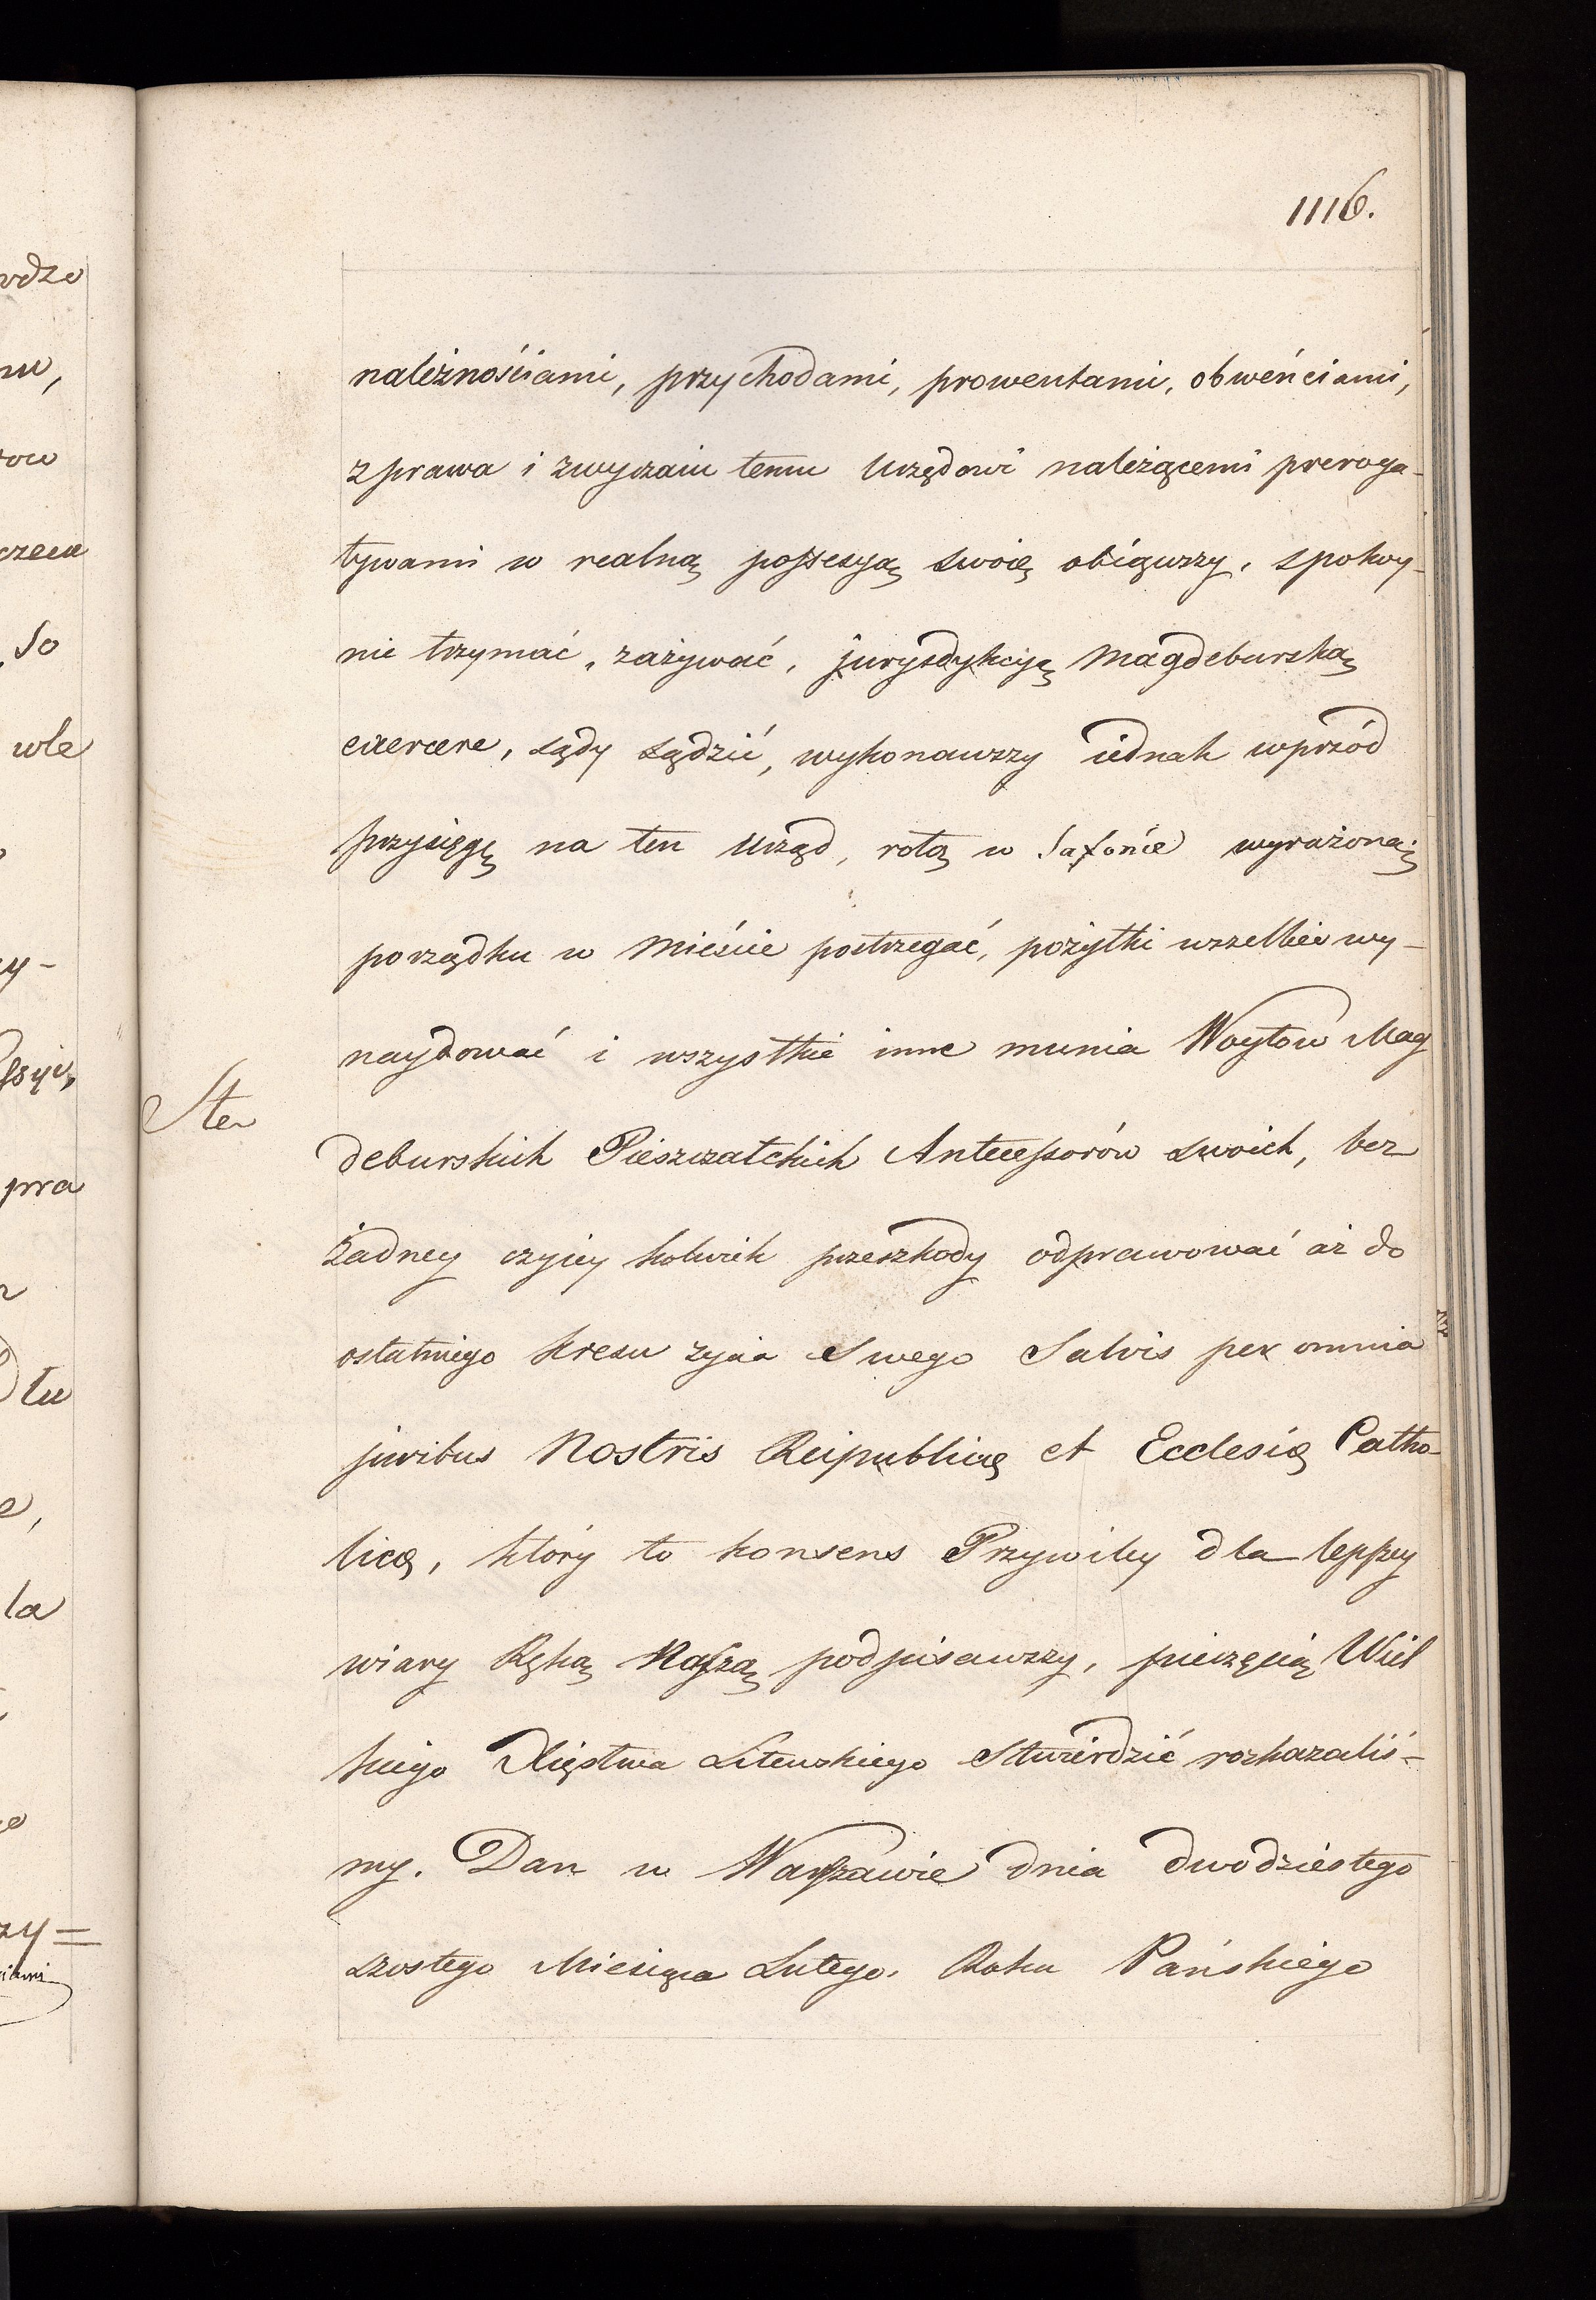 1116.
należnościami, przychodami, prowentami, obwenciami,
z prawa i zwyczaiu temu Urzędowi należącemi preroga-
tywami w realną possesyą swoię obiąwszy, spokoy-
nie trzymać, zażywać, jurysdykcyą Magdeburską
exercere, sądy sądzić, wykonawszy iednak wprzód
przysięgę na ten Urząd, rotą w Saxonie wyrażoną;
porządku w Mieście postrzegać, pożytki wszelkie wy-
naydować i wszystkie inne munia Woytow Mag
deburskich Pieszczatckich Antecessorów swoich, bez
żadney czyiey kolwiek przeszkody odprawować aż do
ostatniego kresu życia Swego Salvis per omnia
juribus Nostris Reipublicę et Ecclesię Catho-
licę, który to konsens Przywiley dla lepszey
wiary Ręką Naszą podpisawszy, pieczęcią Wiel
kiego Xięstwa Litewskiego Stwierdzić rozkazaliś-
my. Dan w Warszawie dnia dwudziestego
szostego Miesiąca Lutego. Roku Pańskiego